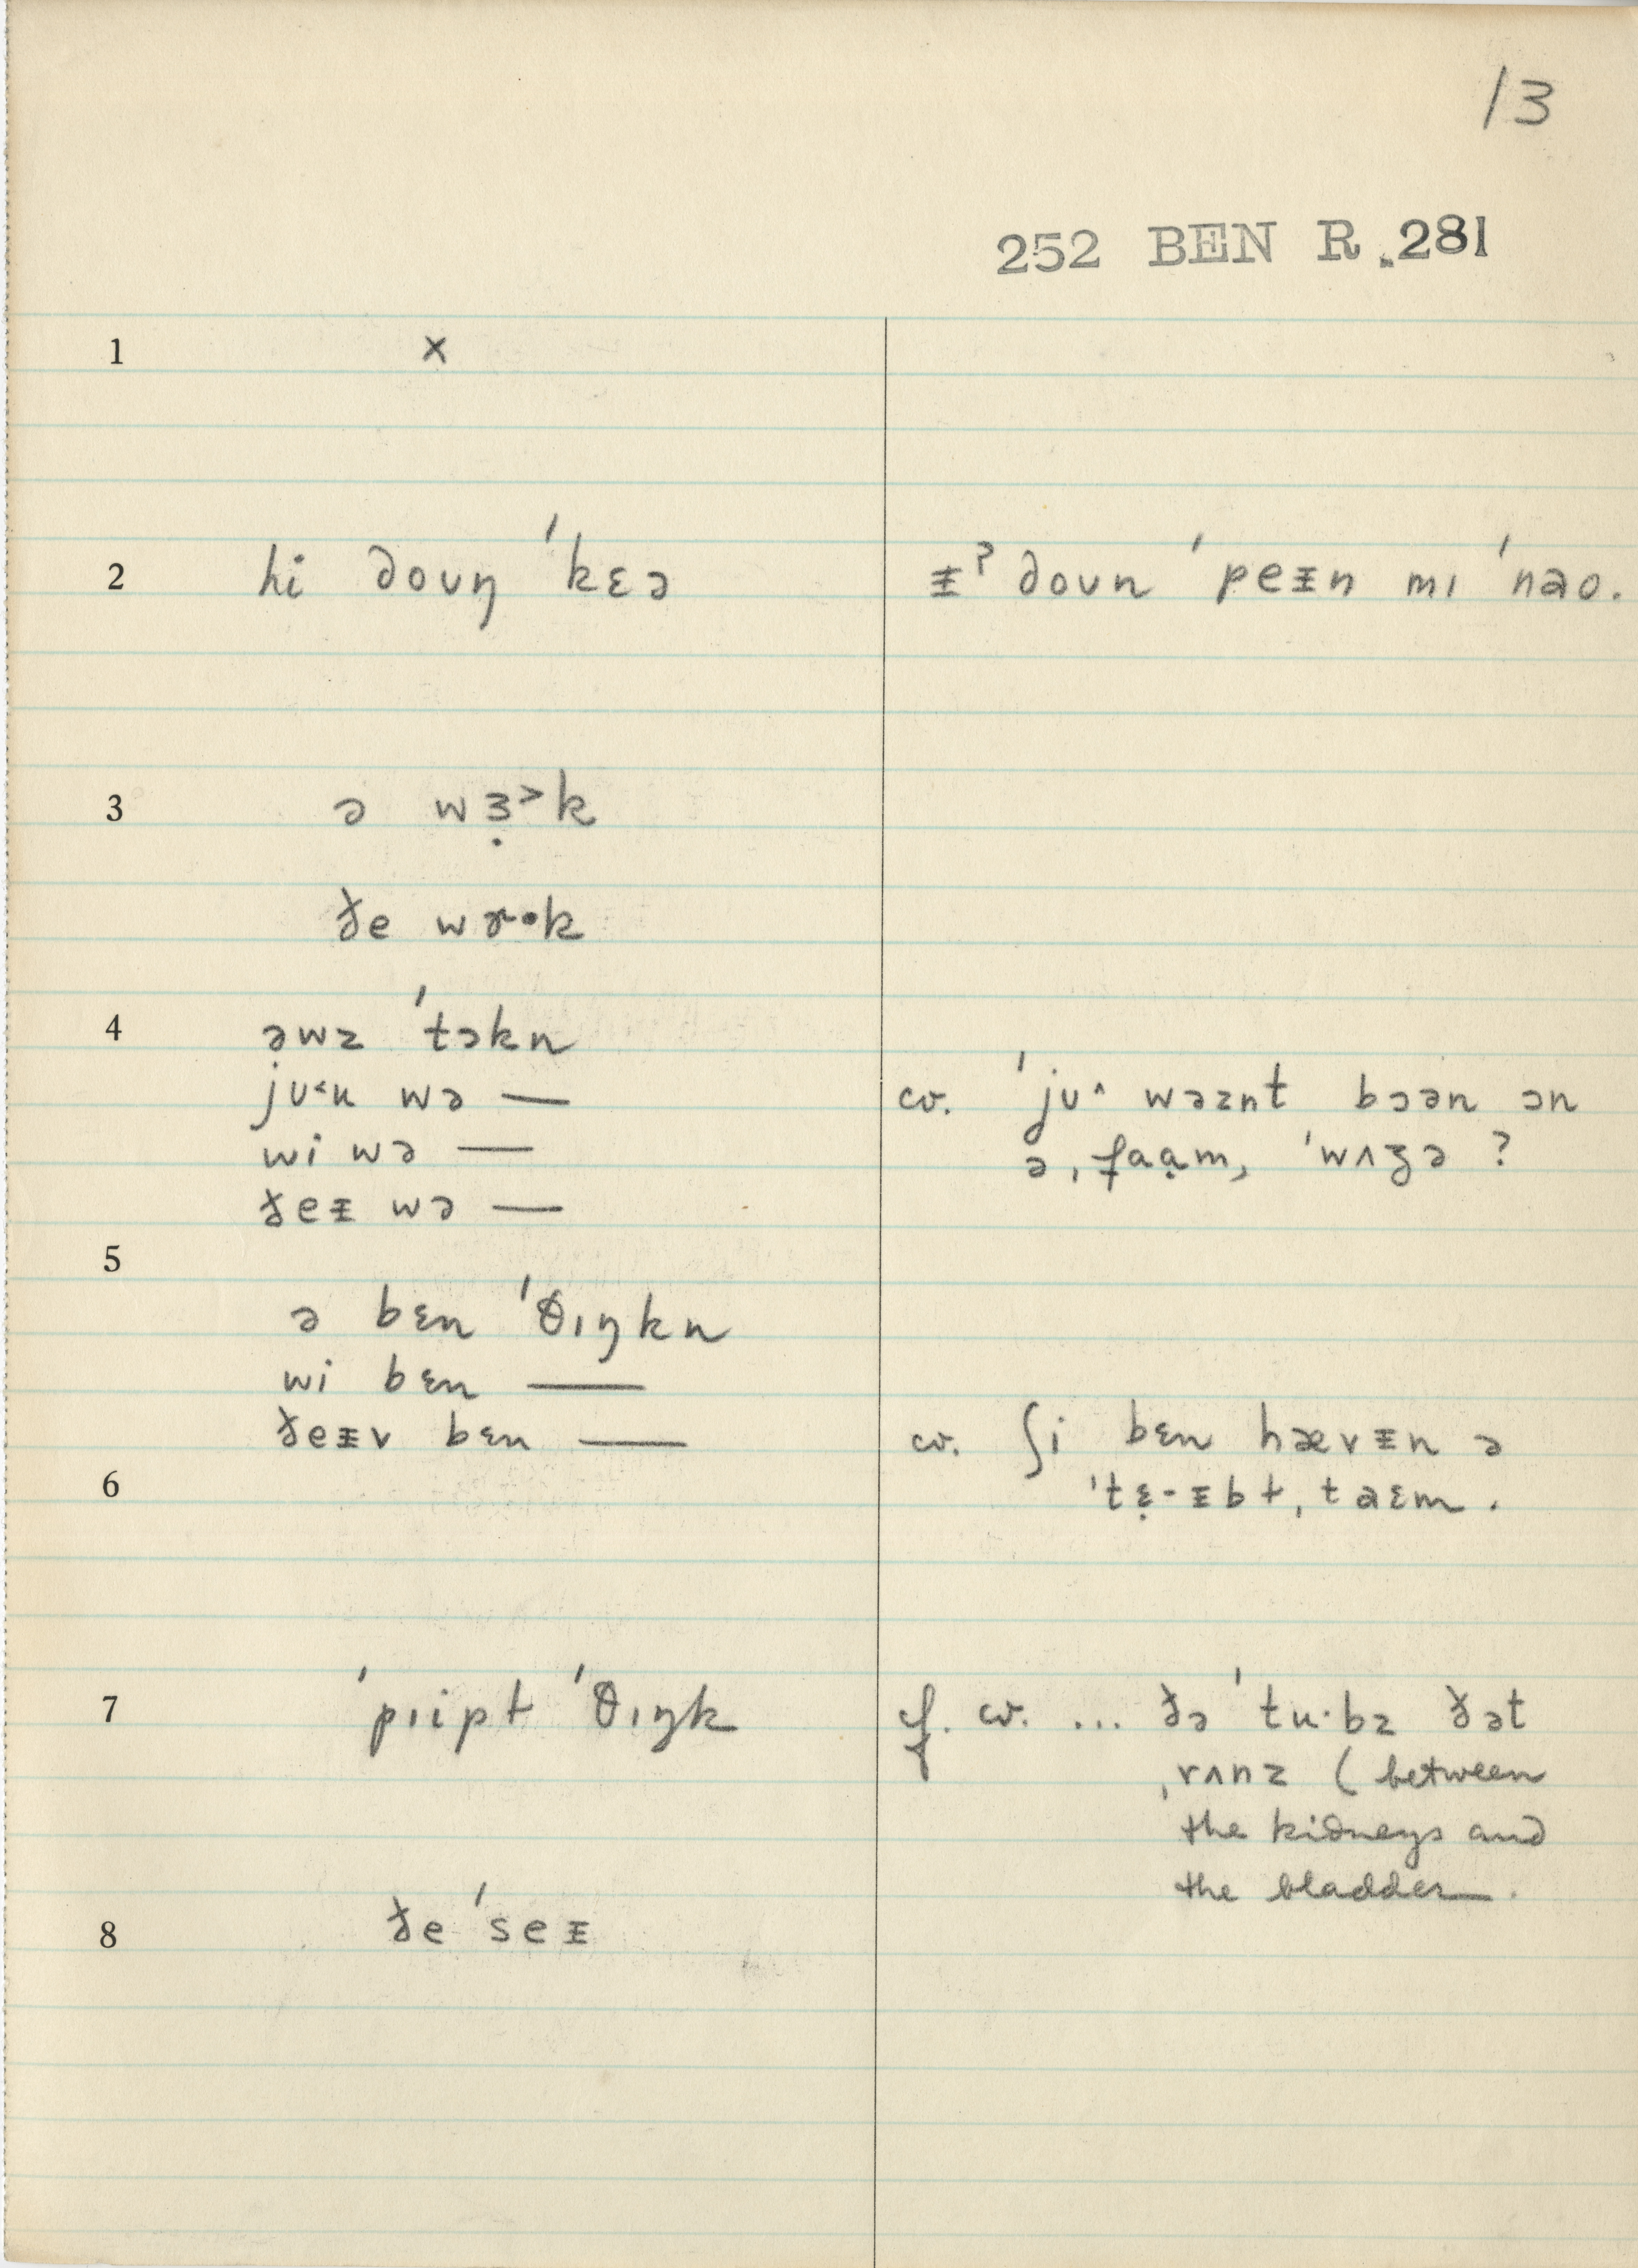 13
252 BEN R.281
1 ×
2 hi doʊŋ ˈkɛə
ᵻˀ doʊn ˈpeᵻn mɪ ˈnao.
3 ə wɜ̣˃k
ðe wɚ·k
4 ə̣wz ˈtɔkn
jʊ˂u wə —
wi wə —
ðeᵻ wə —
cv. ˈjʊ^ wəznt bɔən ɔn
ə ˌfaạm, ˈwʌʒə ?
5
ə bɛn ˈθɪŋkn
wi bɛn —
ðeᵻv bɛn —
cv. ʃi bɛn hævᵻn ə
6
ˈtɛ̣-ᵻbɫ ˌtaɛm.
7 ˈpɪipɫ ˈθɪŋk
cf. cv. ... ðə ˈtu·bz ðət
ˌrʌnz ( between
the kidneys and
the bladder.
8 ðe ˈseᵻ